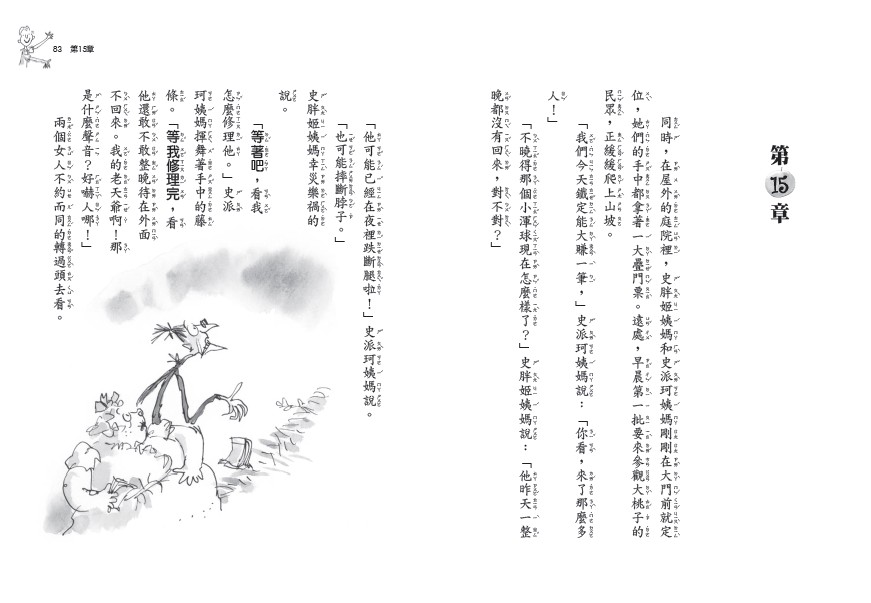 第15章
同時，在屋外的庭院裡，史胖姬姨媽和史派珂姨媽剛剛在大門前就定
位，她們的手中都拿著一大疊門票。遠處，早晨第一批要來參觀大桃子的
民眾，正緩緩爬上山坡。
「我們今天鐵定能大賺一筆，」史派珂姨媽說：「你看，來了那麼多
人！」
「不曉得那個小渾球現在怎麼樣了？」史胖姬姨媽說：「他昨天一整
晚都沒有回來，對不對？」
83 第15章
「他可能已經在夜裡跌斷腿啦！」史派珂姨媽說。
「也可能摔斷脖子。」
史胖姬姨媽幸災樂禍的
說。
「等著吧，看我
怎麼修理他。」史派
珂姨媽揮舞著手中的藤
條。「等我修理完，看
他還敢不敢整晚待在外面
不回來。我的老天爺啊！那
是什麼聲音？好嚇人哪！」
兩個女人不約而同的轉過頭去看。